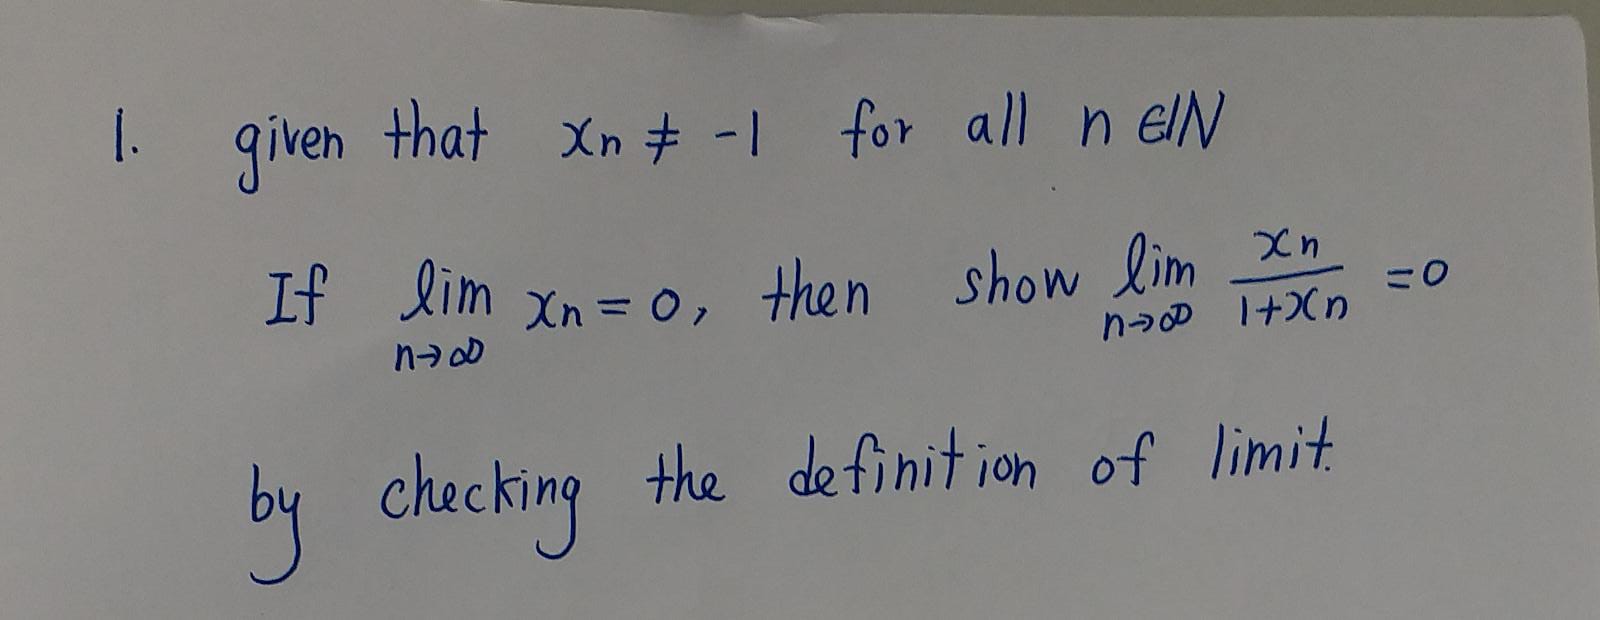 1. given that xn ≠ -1 for all n ∈ ℕ
If lim n→∞ xn = 0, then show lim n→∞ xn/1+xn = 0
by checking the definition of limit.